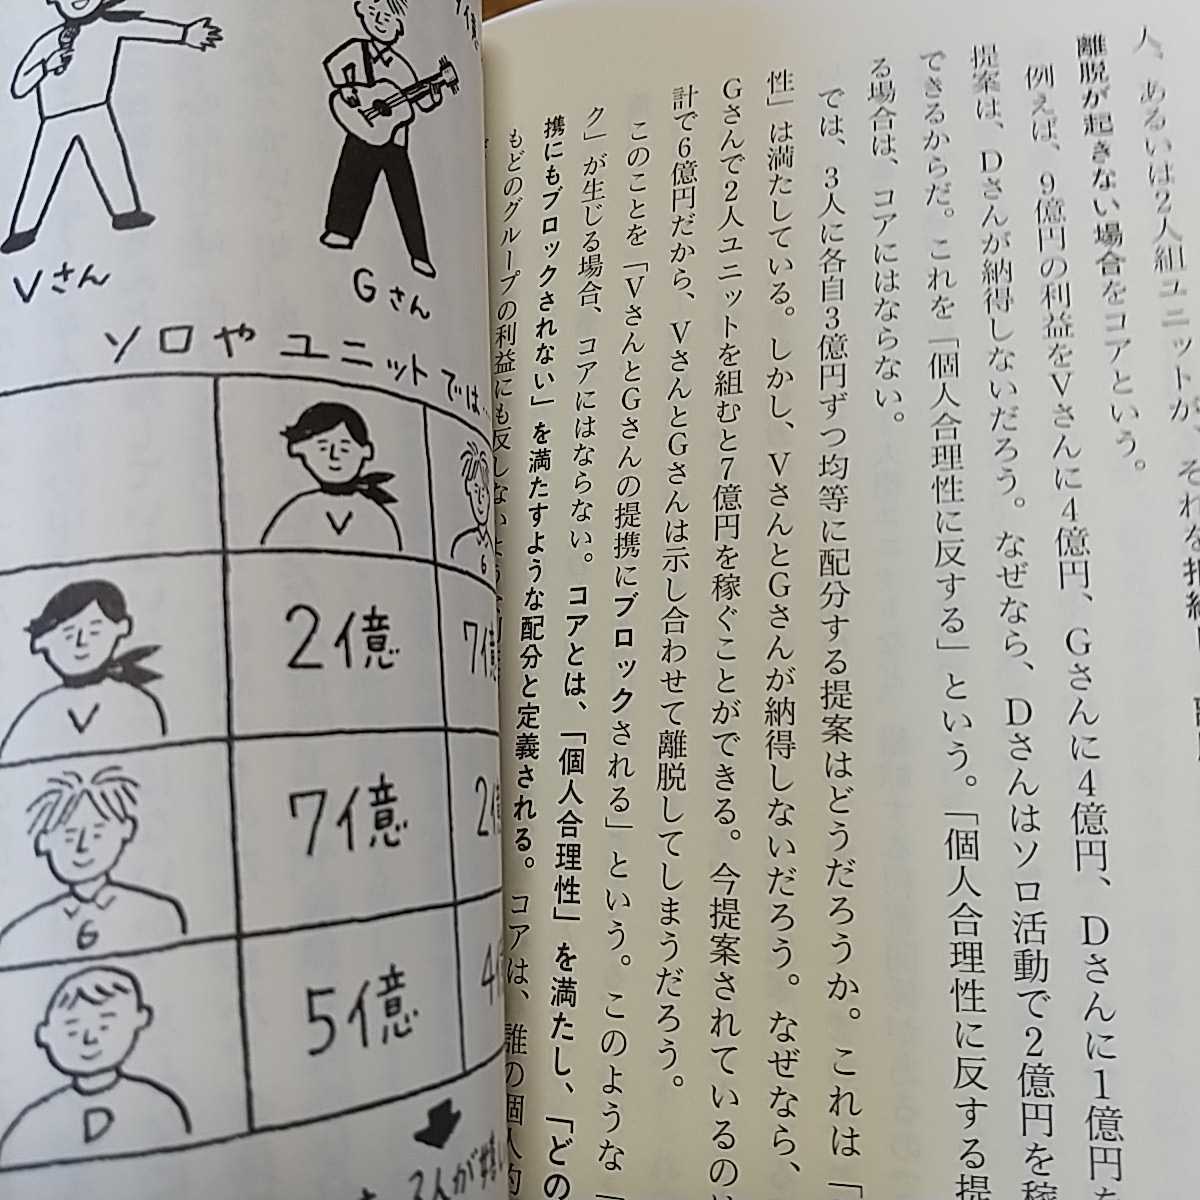 Vさん
Gさん
ソロやユニットでは…
V
G
V
2億
7億
G
7億
2億
D
5億
人、あるいは2人組ユニットが、それな
離脱が起きない場合をコアという。
例えば、9億円の利益をVさんに4億円、Gさんに4億円、Dさんに1億円
提案は、Dさんが納得しないだろう。なぜなら、Dさんはソロ活動で2億円を稼
できるからだ。これを「個人合理性に反する」という。「個人合理性に反する提
る場合は、コアにはならない。
では、3人に各自3億円ずつ均等に配分する提案はどうだろうか。これは「
性」は満たしている。しかし、VさんとGさんが納得しないだろう。なぜなら、
Gさんで2人ユニットを組むと7億円を稼ぐことができる。今提案されているの
計で6億円だから、VさんとGさんは示し合わせて離脱してしまうだろう。
このことを「VさんとGさんの提携にブロックされる」という。このような「
ク」が生じる場合、コアにはならない。コアとは、「個人合理性」を満たし、「どの
携にもブロックされない」を満たすような配分と定義される。コアは、誰の個人的
もどのグループの利益にも反しない